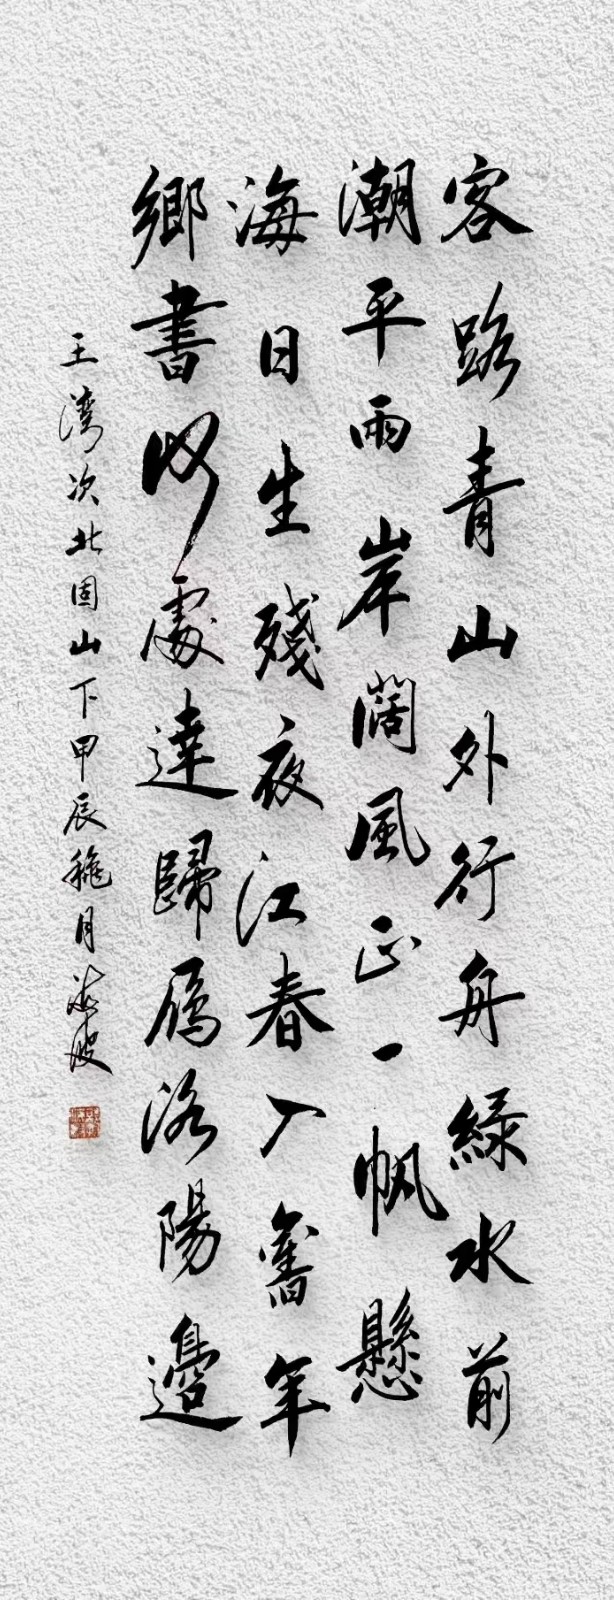 客路青山外行舟綠水前
潮平兩岸闊風正一帆懸
海日生殘夜江春入舊年
鄉書何處達歸鴈洛陽邊
王湾次北固山下甲辰穐月海波